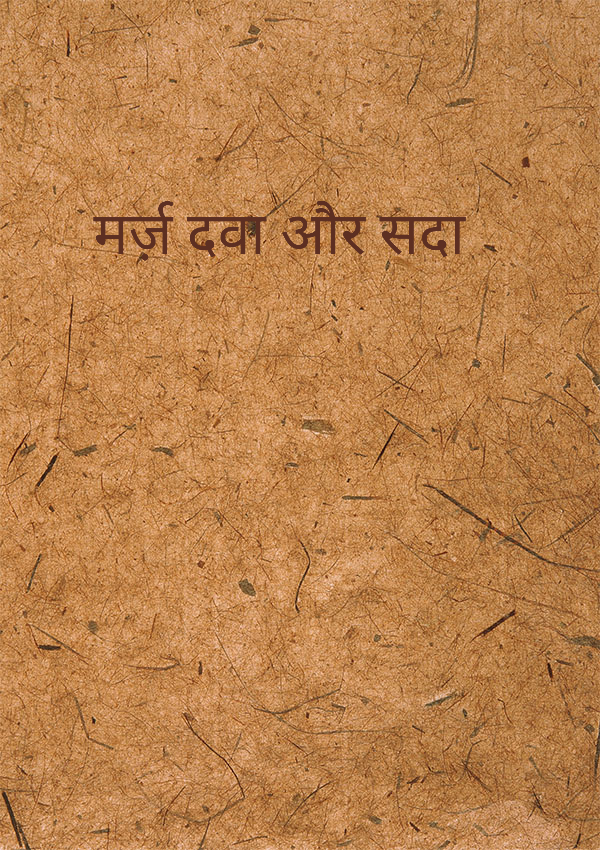 मर्ज़ दवा और सदा